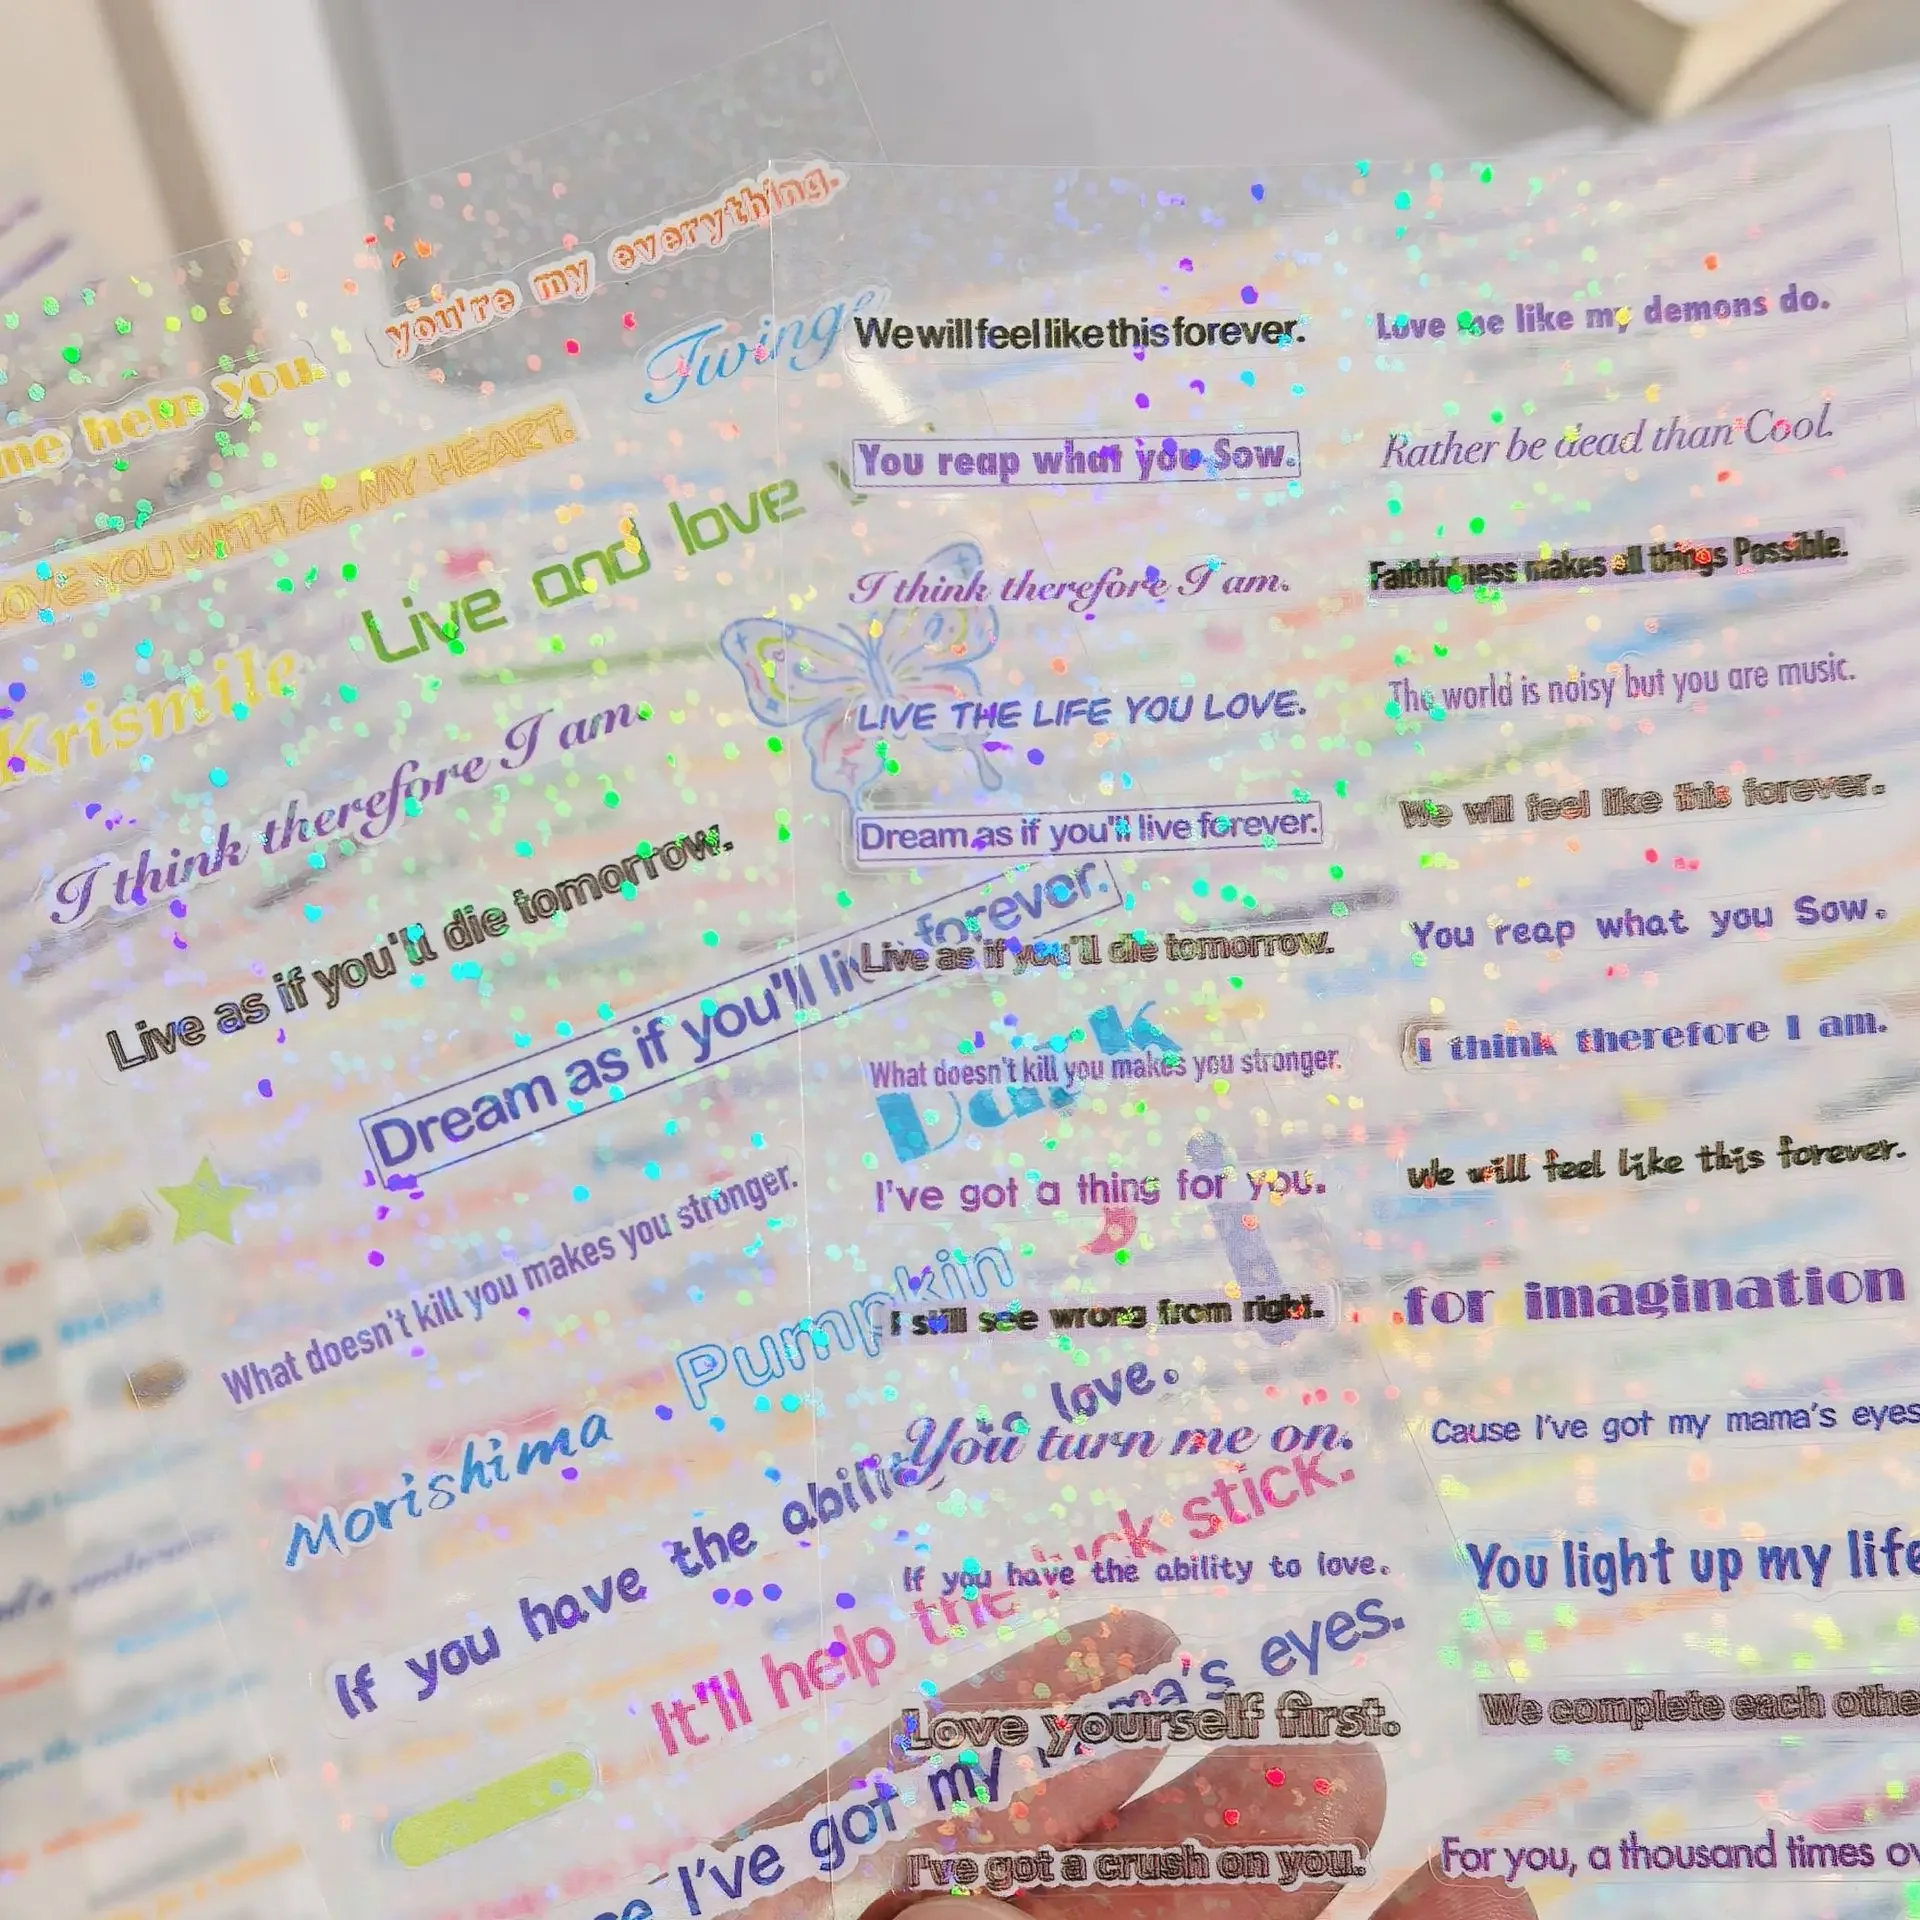 you're my everything.
me help you.
LOVE YOU WITH AL MY HEART.
Live and love
Krismile
I think therefore I am.
Live as if you'll die tomorrow.
Dream as if you'll li forever.
What doesn't kill you makes you stronger.
Morishima
Pumpkin
Dark
If you have the ability to love.
It'll help the luck stick.
I've got my mama's eyes.
We will feel like this forever.
You reap what you Sow.
I think therefore I am.
LIVE THE LIFE YOU LOVE.
Dream as if you'll live forever.
Live as if you'll die tomorrow.
What doesn't kill you makes you stronger.
I've got a thing for you.
I still see wrong from right.
You turn me on.
If you have the ability to love.
Love yourself first.
I've got a crush on you.
Love me like my demons do.
Rather be dead than Cool.
Faithfulness makes all things Possible.
The world is noisy but you are music.
We will feel like this forever.
You reap what you Sow.
I think therefore I am.
We will feel like this forever.
for imagination
Cause I've got my mama's eyes
You light up my life
We complete each othe
For you, a thousand times ov